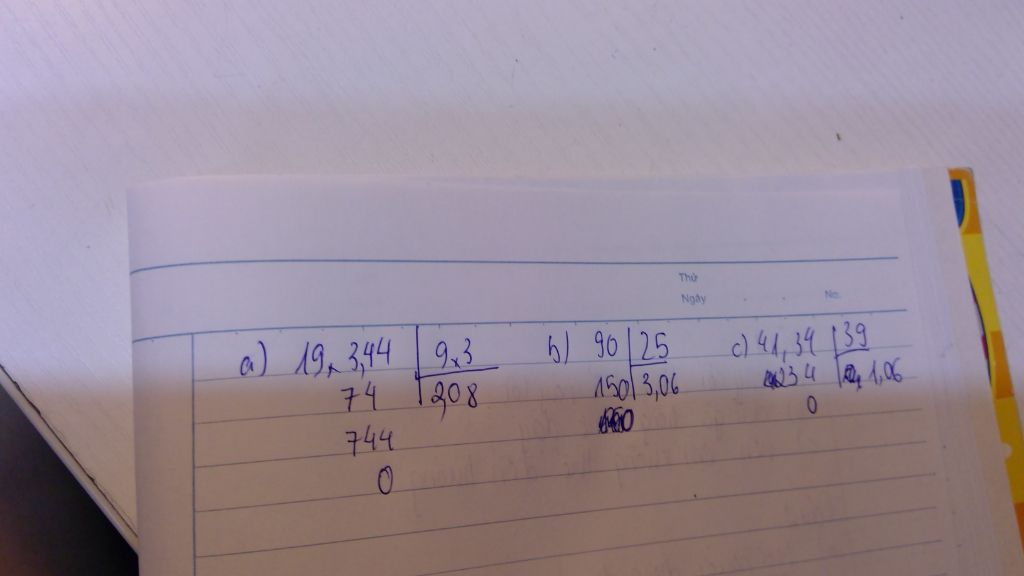 Thứ
Ngày
No.
a) 19,344 9,3
74 2,08
744
0
b) 90 25
150 3,06
0
c) 41,34 39
234 1,06
0